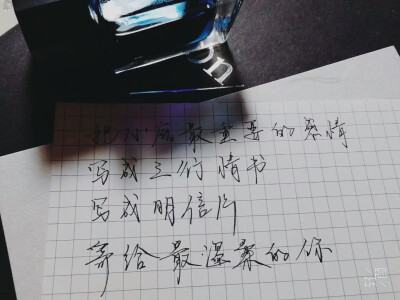 把心底最重要的情
写成三行情书
写成明信片
寄给最温柔的你